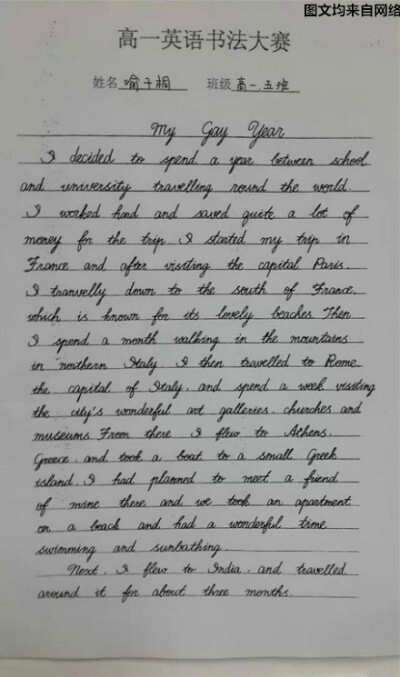 图文均来自网络
高一英语书法大赛
姓名 喻子桐 班级 高一.五班
My Gay Year
I decided to spend a year between school
and university travelling round the world.
I worked hard and saved quite a lot of
money for the trip. I started my trip in
France and after visiting the capital Paris.
I tranvelly down to the south of France.
which is known for its lovely beaches Then
I spend a month walking in the mountains
in northern Italy. I then travelled to Rome
the capital of Italy. and spend a week visiting
the city's wonderful art galleries. churches and
museums From there I flew to Athens.
Greece. and took a boat to a small Greek
island. I had planned to meet a friend
of mine there and we took an apartment
on a beack and had a wonderful time
swimming and sunbathing.
Next. I flew to India. and travelled
around it for about three months.